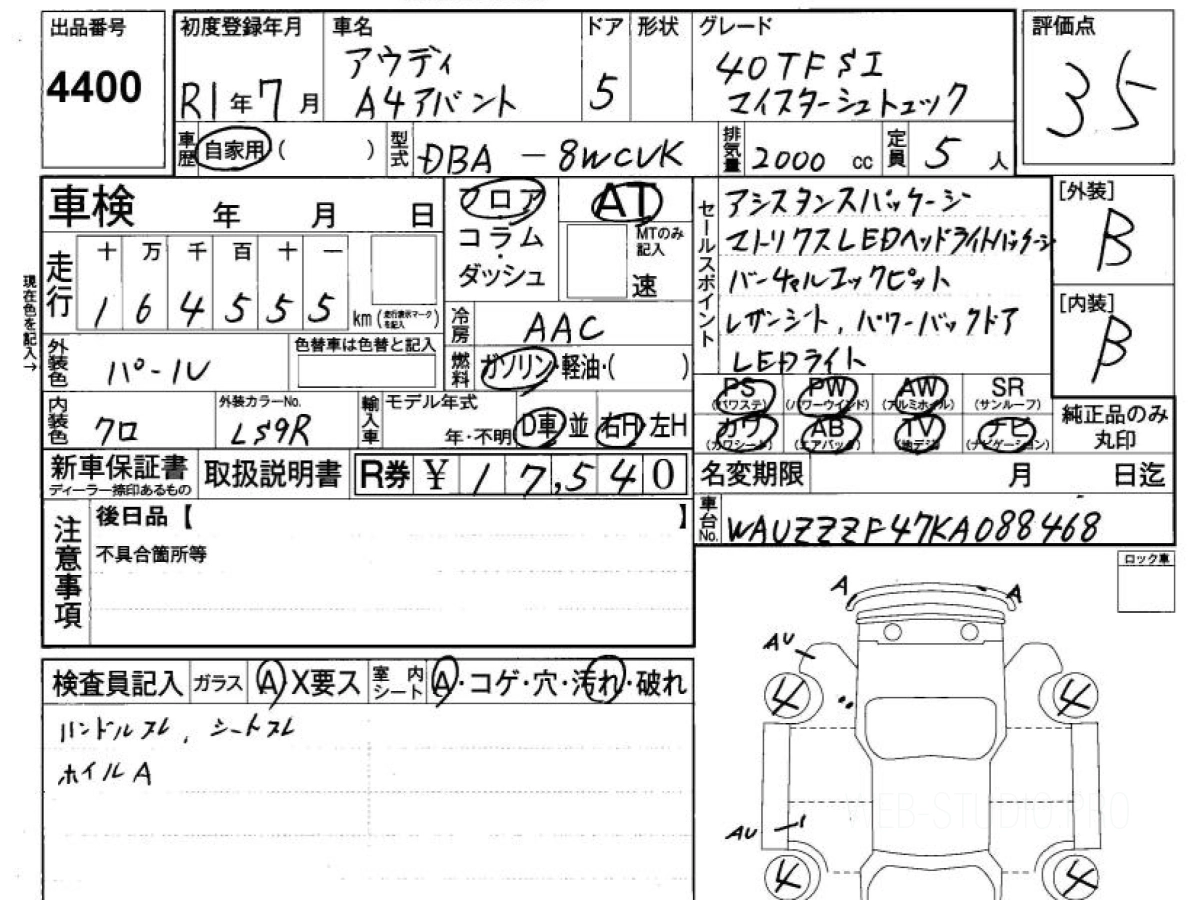 出品番号
4400
初度登録年月
R1年7月
車名
アウディ
A4アバント
ドア
5
形状
グレード
40TFSI
マイスターシュトュック
評価点
35
車歴
自家用 ( )
型式
DBA-8WCVK
排気量
2000 cc
定員
5人
車検 年 月 日
フロア
コラム
・
ダッシュ
AT
MTのみ
記入
速
セールスポイント
アシスタンスパッケージ
マトリクスLEDヘッドライトパッケージ
バーチャルコックピット
レザーシート, パワーバックドア
LEDライト
[外装]
B
[内装]
B
現在色を記入→
走行
十 万 千 百 十 一
1 6 4 5 5 5
km (走行表示マークを記入)
冷房
AAC
外装色
パール
色替車は色替と記入
燃料
ガソリン・軽油・( )
PS
(パワステ)
PW
(パワーウインド)
AW
(アルミホイル)
SR
(サンルーフ)
カワ
(カワシート)
AB
(エアバッグ)
TV
(地デジ)
ナビ
(ナビゲーション)
純正品のみ
丸印
内装色
クロ
外装カラーNo.
LS9R
輸入車
モデル年式
年・不明
D車 並 右H 左H
新車保証書
ディーラー捺印あるもの
取扱説明書
R券 ¥ 17,540
名変期限 月 日迄
車台No.
WAUZZZF47KA088468
注意事項
後日品【 】
不具合箇所等
ロック車
検査員記入
ガラス
A X要ス
室内
シート
A・コゲ・穴・汚れ・破れ
ハンドルスレ, シートスレ
ホイルA
A A
AU
4 4
AU
4 4
WEB-STUDIO.PRO